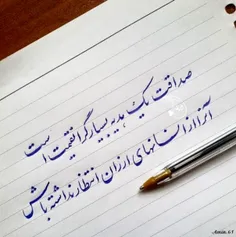 صداقت یک هدیه بسیار گرانقیمت است
آنرا از انسانهای ارزان انتظار نداشته باش
Amin.63